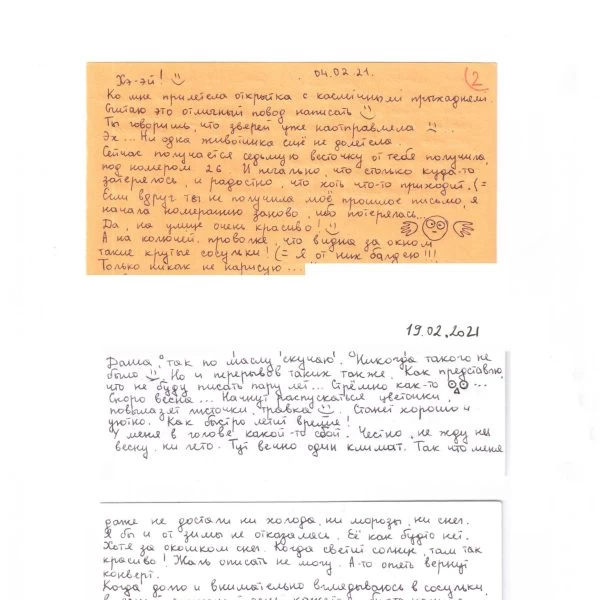 04.02.21.
2
Хэ-эй!
Ко мне прилетела открытка с касмічнымі прыхаднямі.
Считаю это отличный повод написать
Ты говоришь, что зверей уже наотправляла
Эх... Ни одна животинка ещё не долетела.
Сейчас получается седьмую весточку от тебя получила,
под номером 26. И печально, что столько куда-то
затерялось, и радостно, что хоть что-то приходит. (=
Если вдруг ты не получила моё прошлое письмо, я
начала нумерацию заново, ибо потерялась...
Да, на улице очень красиво!
А на колючей проволке, что видна за окном
такие крутые сосульки! (= Я от них балдею!!!
Только никак не нарисую...
19.02.2021
Даша, так по маслу скучаю. Никогда такого не
было Но и перерывов таких также. Как представлю,
что не буду писать пару лет... Стрёмно как-то ...
Скоро весна... Начнут распускаться цветочки,
повылазят листочки, травка. Станет хорошо и
уютно. Как быстро летит время!
У меня в голове какой-то сбой. Честно, не жду ни
весну, ни лето. Тут вечно один климат. Так что меня
даже не достали ни холода, ни морозы, ни снег.
Я бы и от зимы не отказалась. Её как будто нет.
Хотя за окошком снег. Когда светит солнце, там так
красиво! Жаль описать не могу. А-то опять вернут
конверт.
Когда долго и внимательно вглядываюсь в сосульки,